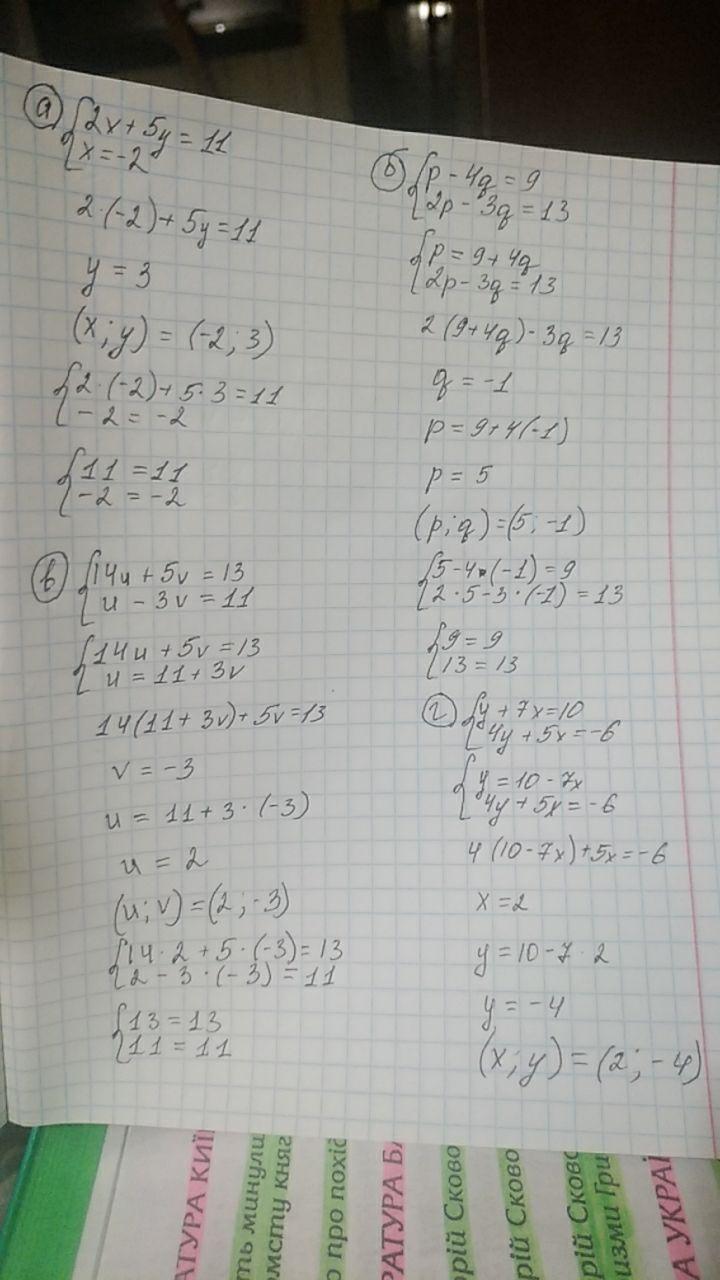 а) {2x + 5y = 11
{x = -2
2·(-2) + 5y = 11
y = 3
(x; y) = (-2; 3)
{2·(-2) + 5·3 = 11
{-2 = -2
{11 = 11
{-2 = -2
б) {p - 4q = 9
{2p - 3q = 13
{p = 9 + 4q
{2p - 3q = 13
2(9 + 4q) - 3q = 13
q = -1
p = 9 + 4(-1)
p = 5
(p; q) = (5; -1)
{5 - 4·(-1) = 9
{2·5 - 3·(-1) = 13
{9 = 9
{13 = 13
в) {14u + 5v = 13
{u - 3v = 11
{14u + 5v = 13
{u = 11 + 3v
14(11 + 3v) + 5v = 13
v = -3
u = 11 + 3·(-3)
u = 2
(u; v) = (2; -3)
{14·2 + 5·(-3) = 13
{2 - 3·(-3) = 11
{13 = 13
{11 = 11
г) {y + 7x = 10
{4y + 5x = -6
{y = 10 - 7x
{4y + 5x = -6
4(10 - 7x) + 5x = -6
x = 2
y = 10 - 7·2
y = -4
(x; y) = (2; -4)
АТУРА КИЇ
ть минули
княг
о про похід
РАТУРА БА
орій Сково
орій Сково
рій Сково
изми Гри
А УКРАЇ